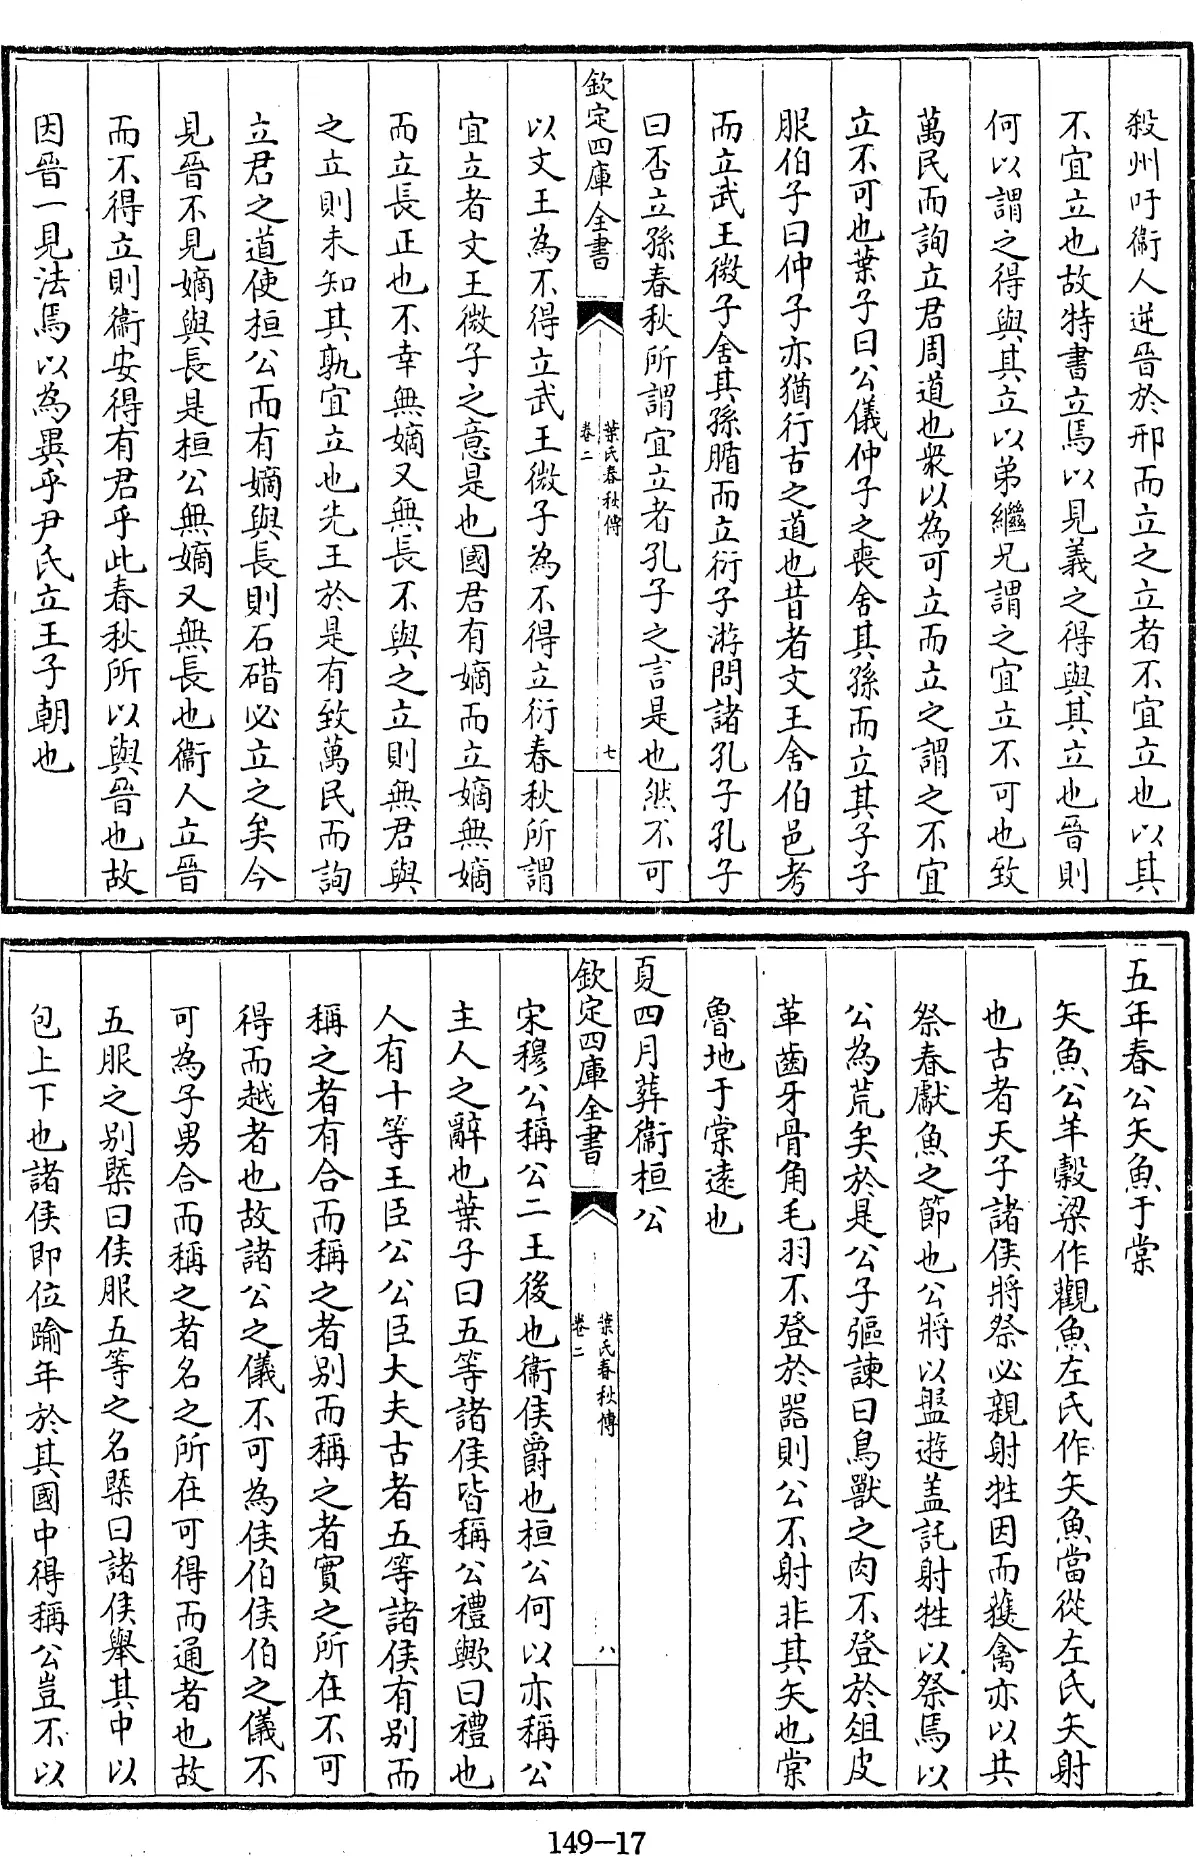 殺州吁衞人逆晉於邢而立之立者不宜立也以其
不宜立也故特書立焉以見義之得與其立也晉則
何以謂之得與其立以弟繼兄謂之宜立不可也致
萬民而詢立君周道也衆以為可立而立之謂之不宜
立不可也葉子曰公儀仲子之喪舍其孫而立其子子
服伯子曰仲子亦猶行古之道也昔者文王舍伯邑考
而立武王微子舍其孫腯而立衍子游問諸孔子孔子
曰否立孫春秋所謂宜立者孔子之言是也然不可
欽定四庫全書
葉氏春秋傳
卷二
七
以文王為不得立武王微子為不得立衍春秋所謂
宜立者文王微子之意是也國君有嫡而立嫡無嫡
而立長正也不幸無嫡又無長不與之立則無君與
之立則未知其孰宜立也先王於是有致萬民而詢
立君之道使桓公而有嫡與長則石碏必立之矣今
見晉不見嫡與長是桓公無嫡又無長也衞人立晉
而不得立則衞安得有君乎此春秋所以與晉也故
因晉一見法焉以為異乎尹氏立王子朝也
五年春公矢魚于棠
矢魚公羊穀梁作觀魚左氏作矢魚當從左氏矢射
也古者天子諸侯將祭必親射牲因而獲禽亦以共
祭春獻魚之節也公將以盤遊蓋託射牲以祭焉以
公為荒矣於是公子彄諫曰鳥獸之肉不登於俎皮
革齒牙骨角毛羽不登於器則公不射非其矢也棠
魯地于棠遠也
夏四月葬衞桓公
欽定四庫全書
葉氏春秋傳
卷二
八
宋穆公稱公二王後也衞侯爵也桓公何以亦稱公
主人之辭也葉子曰五等諸侯皆稱公禮歟曰禮也
人有十等王臣公公臣大夫古者五等諸侯有别而
稱之者有合而稱之者别而稱之者實之所在不可
得而越者也故諸公之儀不可為侯伯侯伯之儀不
可為子男合而稱之者名之所在可得而通者也故
五服之别槩曰侯服五等之名槩曰諸侯舉其中以
包上下也諸侯即位踰年於其國中得稱公豈不以
149-17